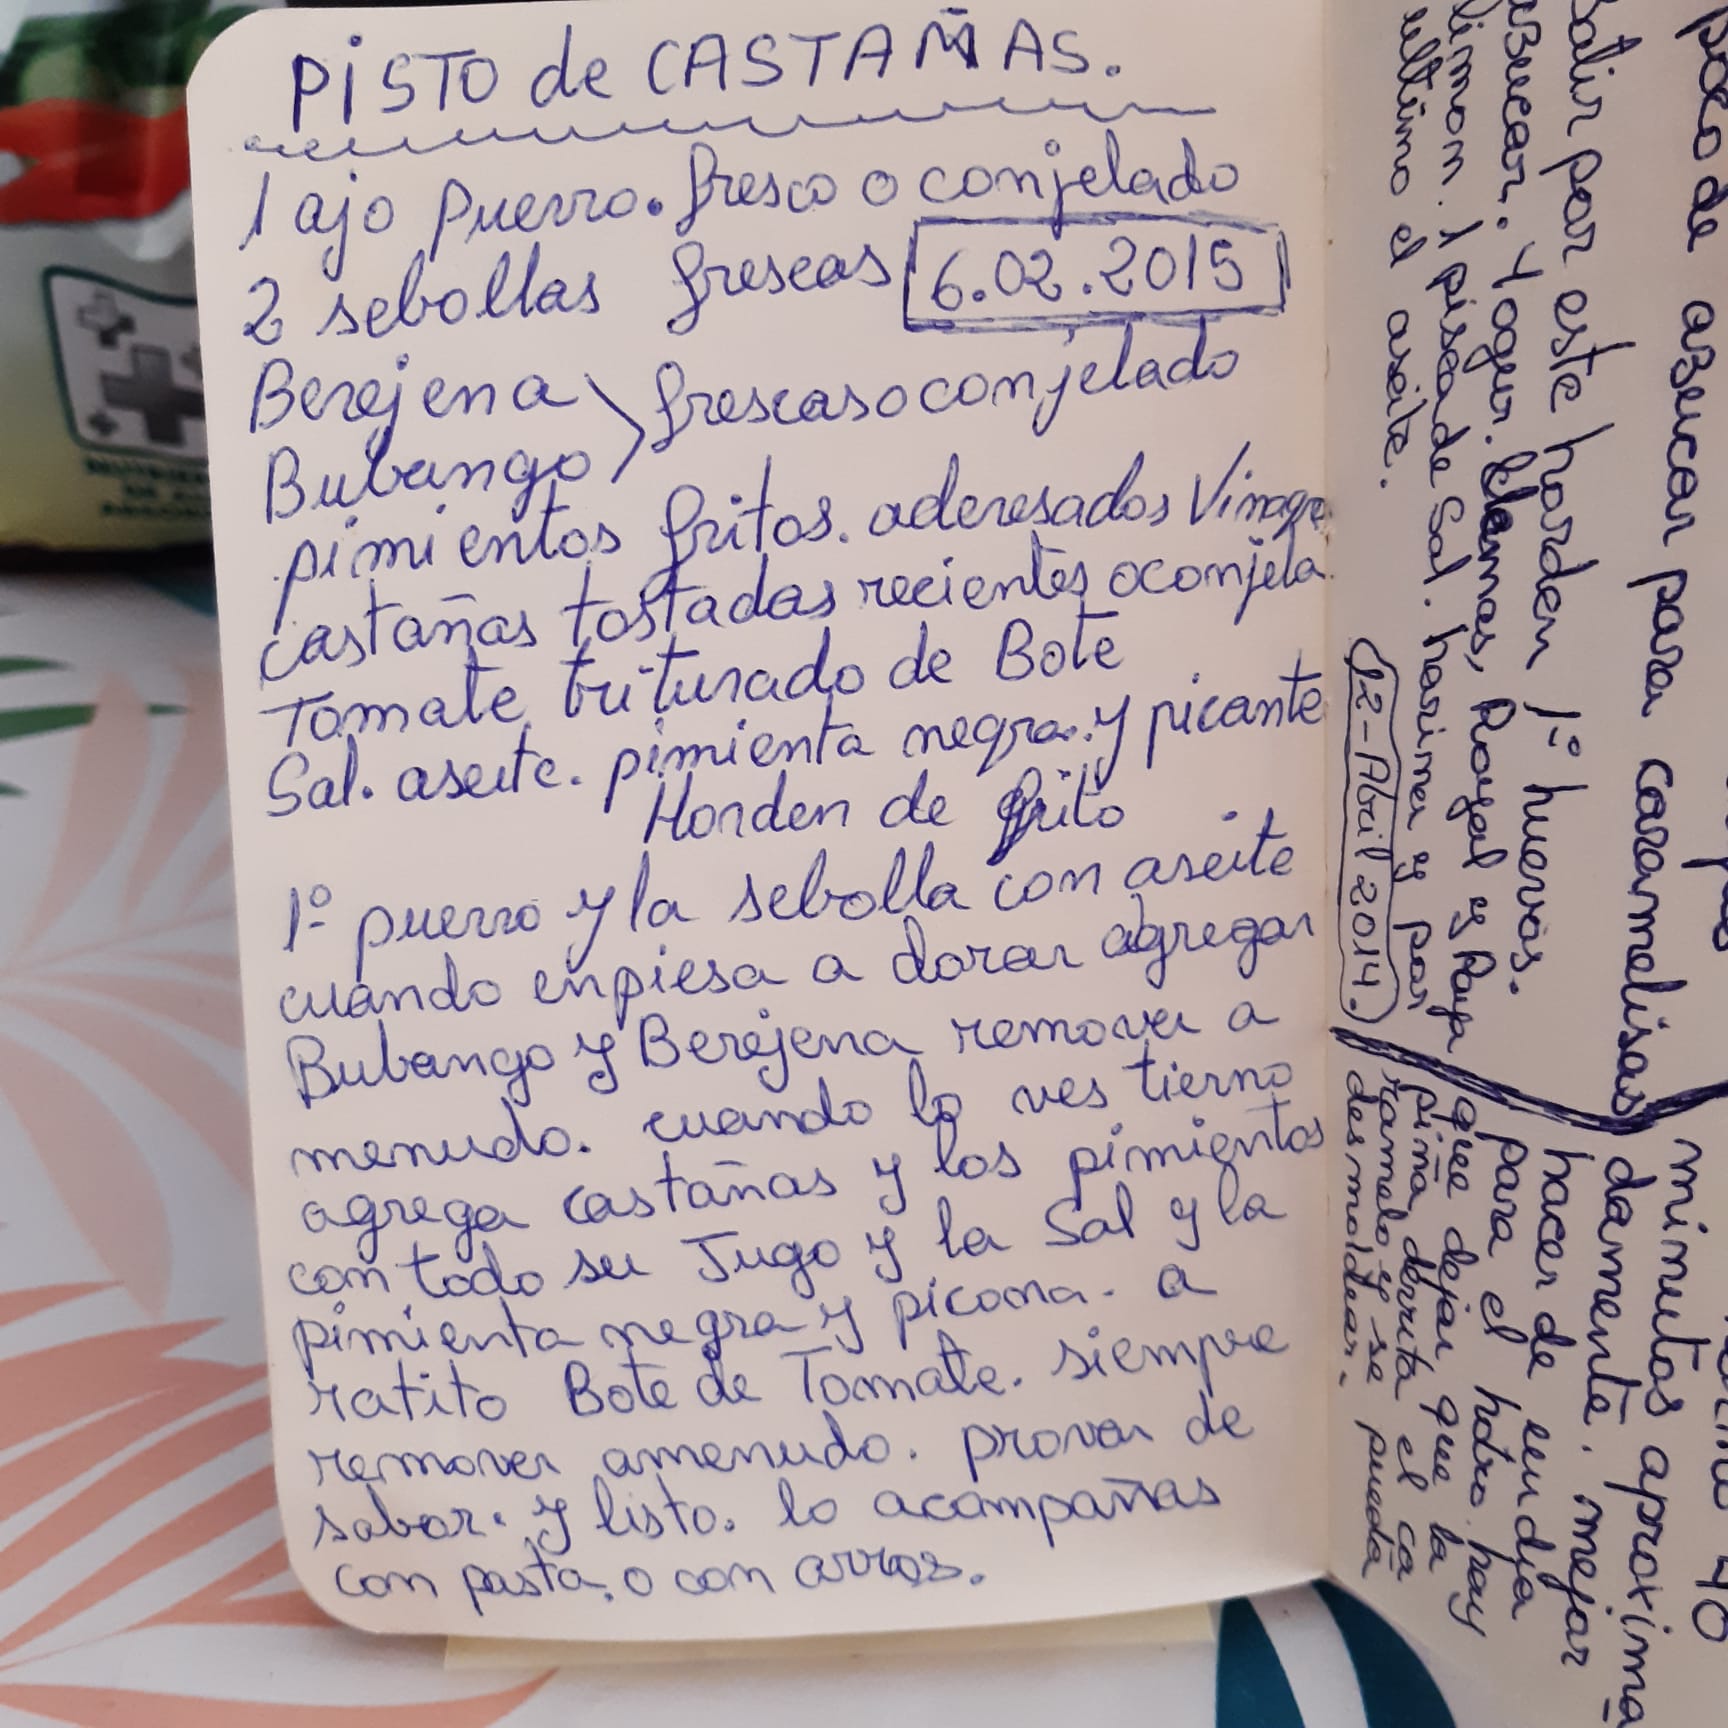 PISTO de CASTAÑAS.
1 ajo puerro. fresco o conjelado
2 sebollas frescas
6.02.2015
Berejena
Bubango
frescas o conjelado
pimientos fritos. aderesados Vinagre
castañas tostadas recientes o conjela
Tomate triturado de Bote
Sal. aseite. pimienta negra. y picante
Horden de frito
1º puerro y la sebolla con aseite
cuando enpiesa a dorar agregar
Bubango y Berejena remover a
menudo. cuando lo ves tierno
agrega castañas y los pimientos
con todo su Jugo y la Sal y la
pimienta negra y picona. a
ratito Bote de Tomate. siempre
remover amenudo. provar de
sabor. y listo. lo acompañas
con pasta, o con arros.
poco de asucar para caramelisar
Batir por este horden 1º huevos.
asucar. Yogur. limon, Royal y Raya
limon. 1 pisca de Sal. harina y por
ultimo el aseite.
12-Abril 2014.
minutos aproxima
damente. mejor
hacer de un dia
para el hotro. hay
que dejar que la
piña derrita el ca
ramelo y se pueda
desmoldear.
40